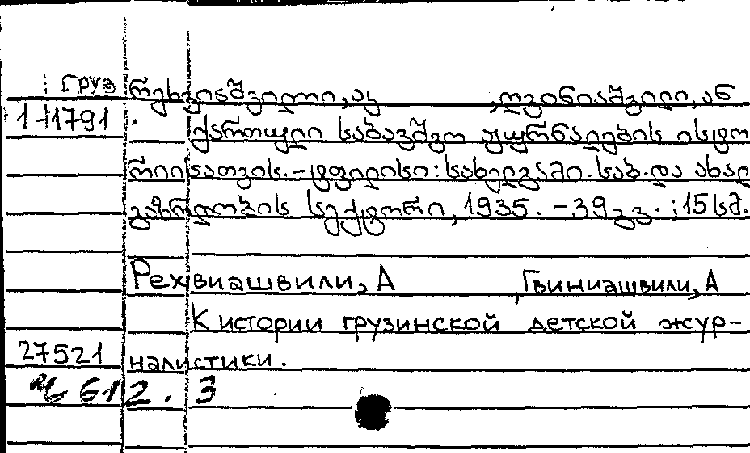 Груз რეხვიაშვილი, აკ , ღვინიაშვილი, ან
1-11791 · ქართული საბავშვო ჟურნალების ისტო
რიისათვის. – ტფილისი: სახელგამი. საბ. და ახალ
გაზრდობის სექტორი, 1935. – 39 გვ. ; 15 სმ.
Рехвиашвили, А , Гвиниашвили, А
К истории грузинской детской жур-
27521 налистики.
612. 3